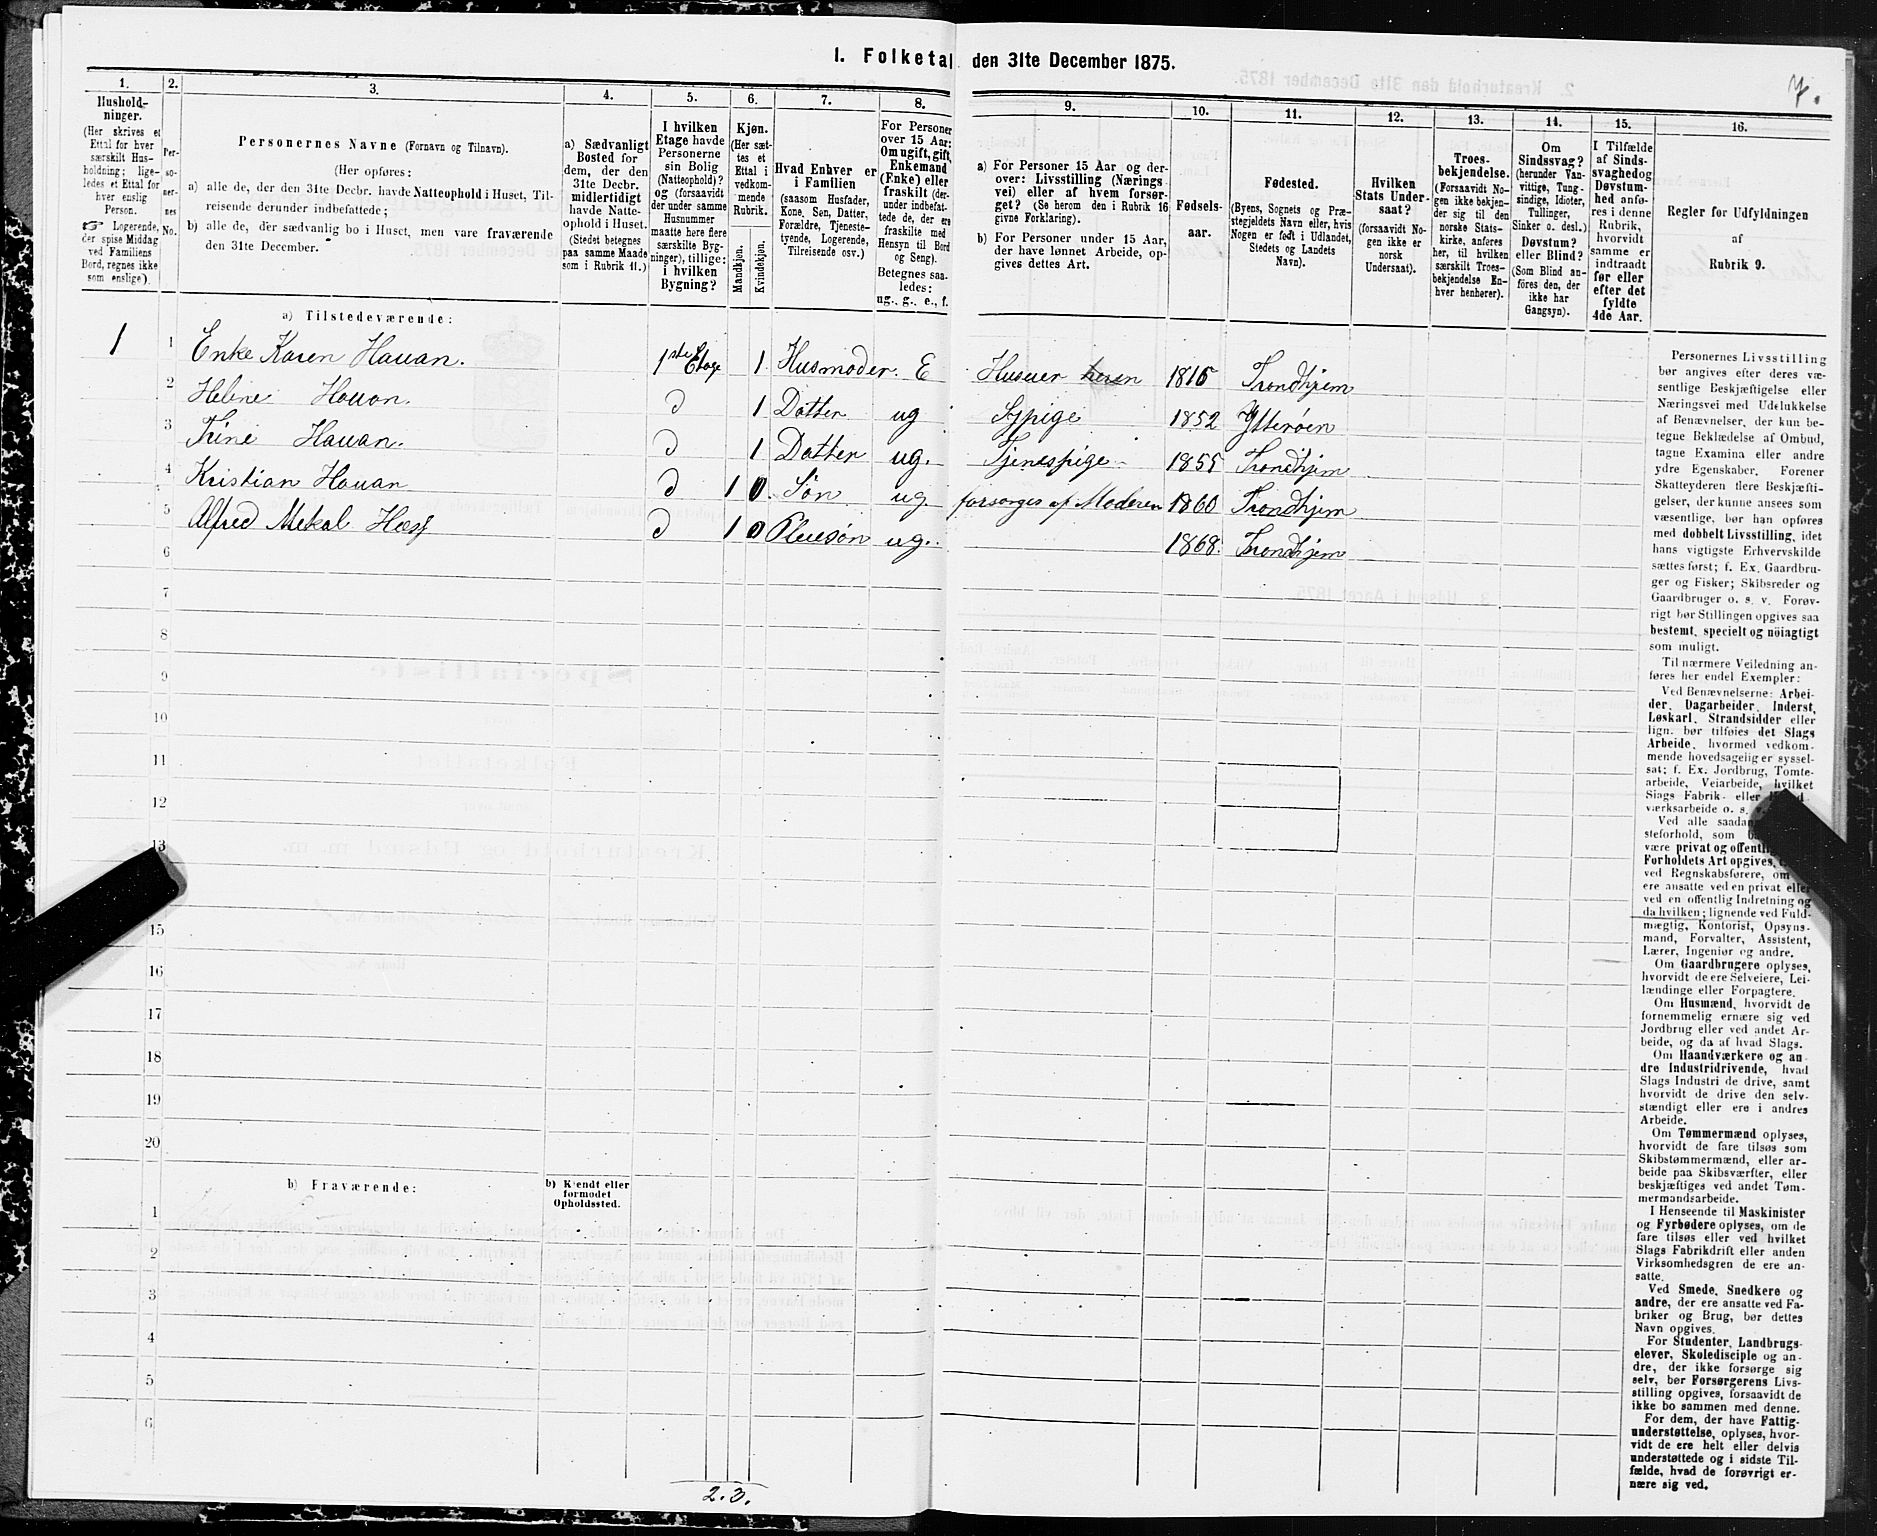 I. Folketal den 31te December 1875.
7.
1.
Hushold-
ninger.
(Her skrives et
Ettal for hver
særskilt Hus-
holdning; lige-
ledes et Ettal for
hver enslig
Person.
☞ Logerende,
der spise Middag
ved Familiens
Bord, regnes ikke
som enslige).
2.
Per-
so-
ner-
nes
No.
3.
Personernes Navne (Fornavn og Tilnavn).
(Her opføres:
a) alle de, der den 31te Decbr. havde Natteophold i Huset, Til-
reisende derunder indbefattede;
b) alle de, der sædvanlig bo i Huset, men vare fraværende
den 31te December.
4.
a) Sædvanligt
Bosted for
dem, der den
31te Decbr.
midlertidigt
havde Natte-
ophold i Huset.
(Stedet betegnes
paa samme Maade
som i Rubrik 11.)
5.
I hvilken
Etage havde
Personerne
sin Bolig
(Natteophold)?
og (forsaavidt
der under samme
Husnummer
maatte høre flere
særskilte Byg-
ninger), tillige:
i hvilken
Bygning?
6.
Kjøn.
(Her sæt-
tes et
Ettal i
vedkom-
mende
Rubrik.
Mandkjøn.
Kvindekjøn.
7.
Hvad Enhver er
i Familien
(saasom Husfader,
Kone, Søn, Datter,
Forældre, Tjeneste-
tyende, Logerende,
Tilreisende osv.)
8.
For Personer
over 15 Aar:
Om ugift, gift,
Enkemand
(Enke) eller
fraskilt (der-
under indbefat-
tede de, der ere
fraskilte med
Hensyn til Bord
og Seng).
Betegnes saa-
ledes:
ug., g., e., f.
9.
a) For Personer 15 Aar og der-
over: Livsstilling (Nærings
vei) eller af hvem forsør-
get? (Se herom den i Rubrik 16
givne Forklaring).
b) For Personer under 15 Aar,
der have lønnet Arbeide, op-
gives dettes Art.
10.
Fødsels-
aar.
11.
Fødested.
(Byens, Sognets og Præ-
stegjeldets Navn eller, hvis
Nogen er født i Udlandet,
Stedets og Landets
Navn).
12.
Hvilken
Stats Under-
saat?
(forsaavidt No-
gen ikke er
norsk
Undersaat).
13.
Troes-
bekjendelse.
(Forsaavidt No-
gen ikke bekjen-
der sig til den
norske Stats-
kirke, anføres
her, til hvilken
særskilt Troes-
bekjendelse En-
hver henhører).
14.
Om
Sindssvag?
(herunder Van-
vittige, Tung-
sindige, Idioter,
Tullinger,
Sinker o. desl.)
Døvstum?
eller Blind?
(Som Blind an-
føres den, der
ikke har
Gangsyn).
15.
I Tilfælde
af Sinds-
svaghed og
Døvstum-
hed anfø-
res i denne
Rubrik,
hvorvidt
samme er
indtraadt
før eller
efter det
fyldte
4de Aar.
16.
Regler for Udfyldningen
af
Rubrik 9.
a) Tilstedeværende:
1 1 Enke Karen Hauan. 1ste Etage 1 Husmoder. E Huseier 1815 Trondhjem
2 Heline Hauan. D 1 Datter ug Sypige 1852 Ytterøen
3 Trine Hauan. D 1 Datter ug. Tjenespige 1855 Trondhjem
4 Kristian Hauan D 1 0 Søn ug. forsørges af Moderen 1860 Trondhjem
5 Alfred Mekal D 1 0 Pleiesøn ug. 1868. Trondhjem
6
7
8
9
10
11
12
13
15
16
17
18
19
20
b) Fraværende:
b) Kjendt eller
formodet
Opholdssted.
1
2
3
4
5
6
2.3.
Personernes Livsstilling
bør angives efter deres væ-
sentlige Beskjæftigelse eller
Næringsvei med Udelukkelse
af Benævnelser, der kun be-
tegne Beklædelse af Ombud,
tagne Examina eller andre
ydre Egenskaber. Forener
Skatteyderen flere Beskjæfti-
gelser, der kunne ansees som
væsentlige, bør han opføres
med dobbelt Livsstilling, idet
hans vigtigste Erhvervskilde
sættes først; f. Ex. Gaardbru-
ger og Fisker; Skibsreder og
Gaardbruger o. s. v. Forøv-
rigt bør Stillingen opgives saa
bestemt, specielt og nøiagtigt
som muligt.
Til nærmere Veiledning an-
føres her endel Exempler:
Ved Benævnelserne: Arbei-
der, Dagarbeider, Inderst,
Løskarl, Strandsidder eller
lign. bør tilføies det Slags
Arbeide, hvormed vedkom-
mende hovedsagelig er syssel-
sat; f. Ex. Jordbrug, Tomte-
arbeide, Veiarbeide, hvilket
Slags Fabrik- eller
værksarbeide o. s. v.
Ved alle
steforhold, som
være privat og
Forholdets Art opgives,
ved Regnskabsførere, om
ere ansatte ved en privat eller
ved en offentlig Indretning og
da hvilken; lignende ved Fuld-
mægtig, Kontorist, Opsyns-
mand, Forvalter, Assistent,
Lærer, Ingeniør og andre.
Om Gaardbrugere oplyses,
hvorvidt de ere Selveiere, Lei-
lændinge eller Forpagtere.
Om Husmænd, hvorvidt de
fornemmelig ernære sig ved
Jordbrug eller ved andet Ar-
beide, og da af hvad Slags.
Om Haandværkere og an
dre Industridrivende, hvad
Slags Industri de drive, samt
hvorvidt de drive den selv-
stændigt eller ere i andres
Arbeide.
Om Tømmermænd oplyses,
hvorvidt de fare tilsøs som
Skibstømmermænd, eller ar-
beide paa Skibsværfter, eller
beskjæftiges ved andet Tøm-
mermandsarbeide.
I Henseende til Maskinister
og Fyrbødere oplyses, om de
fare tilsøs eller ved hvilket
Slags Fabrikdrift eller anden
Virksomhedsgren de ere an-
satte.
Ved Smede, Snedkere og
andre, der ere ansatte ved Fa-
briker og Brug, bør dettes
Navn opgives.
For Studenter, Landbrugs-
elever, Skoledisciple og an-
dre, der ikke forsørge sig
selv, bør Forsørgerens Livs-
stilling opgives, forsaavidt de
ikke bo sammen med denne.
For dem, der have Fattig-
understøttelse, oplyses, hvor-
vidt de ere helt eller delvis
understøttede og i sidste Til-
fælde, hvad de forøvrigt er-
nære sig ved.